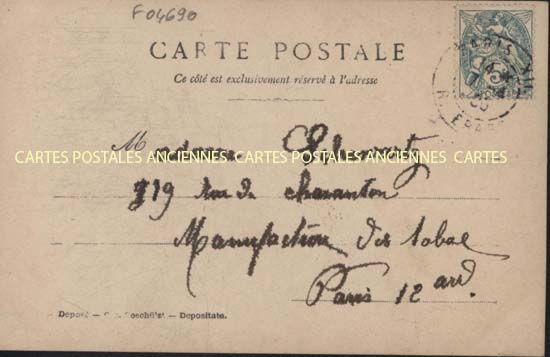 F04690
CARTE POSTALE
Ce côté est exclusivement réservé à l'adresse
PARIS XII
Madame
CARTES POSTALES ANCIENNES CARTES POSTALES ANCIENNES CARTES POSTALES ANCIENNES
319 rue de charanton
Manufaction des tabac
Paris 12 ard.
Deposé — — Depositata.